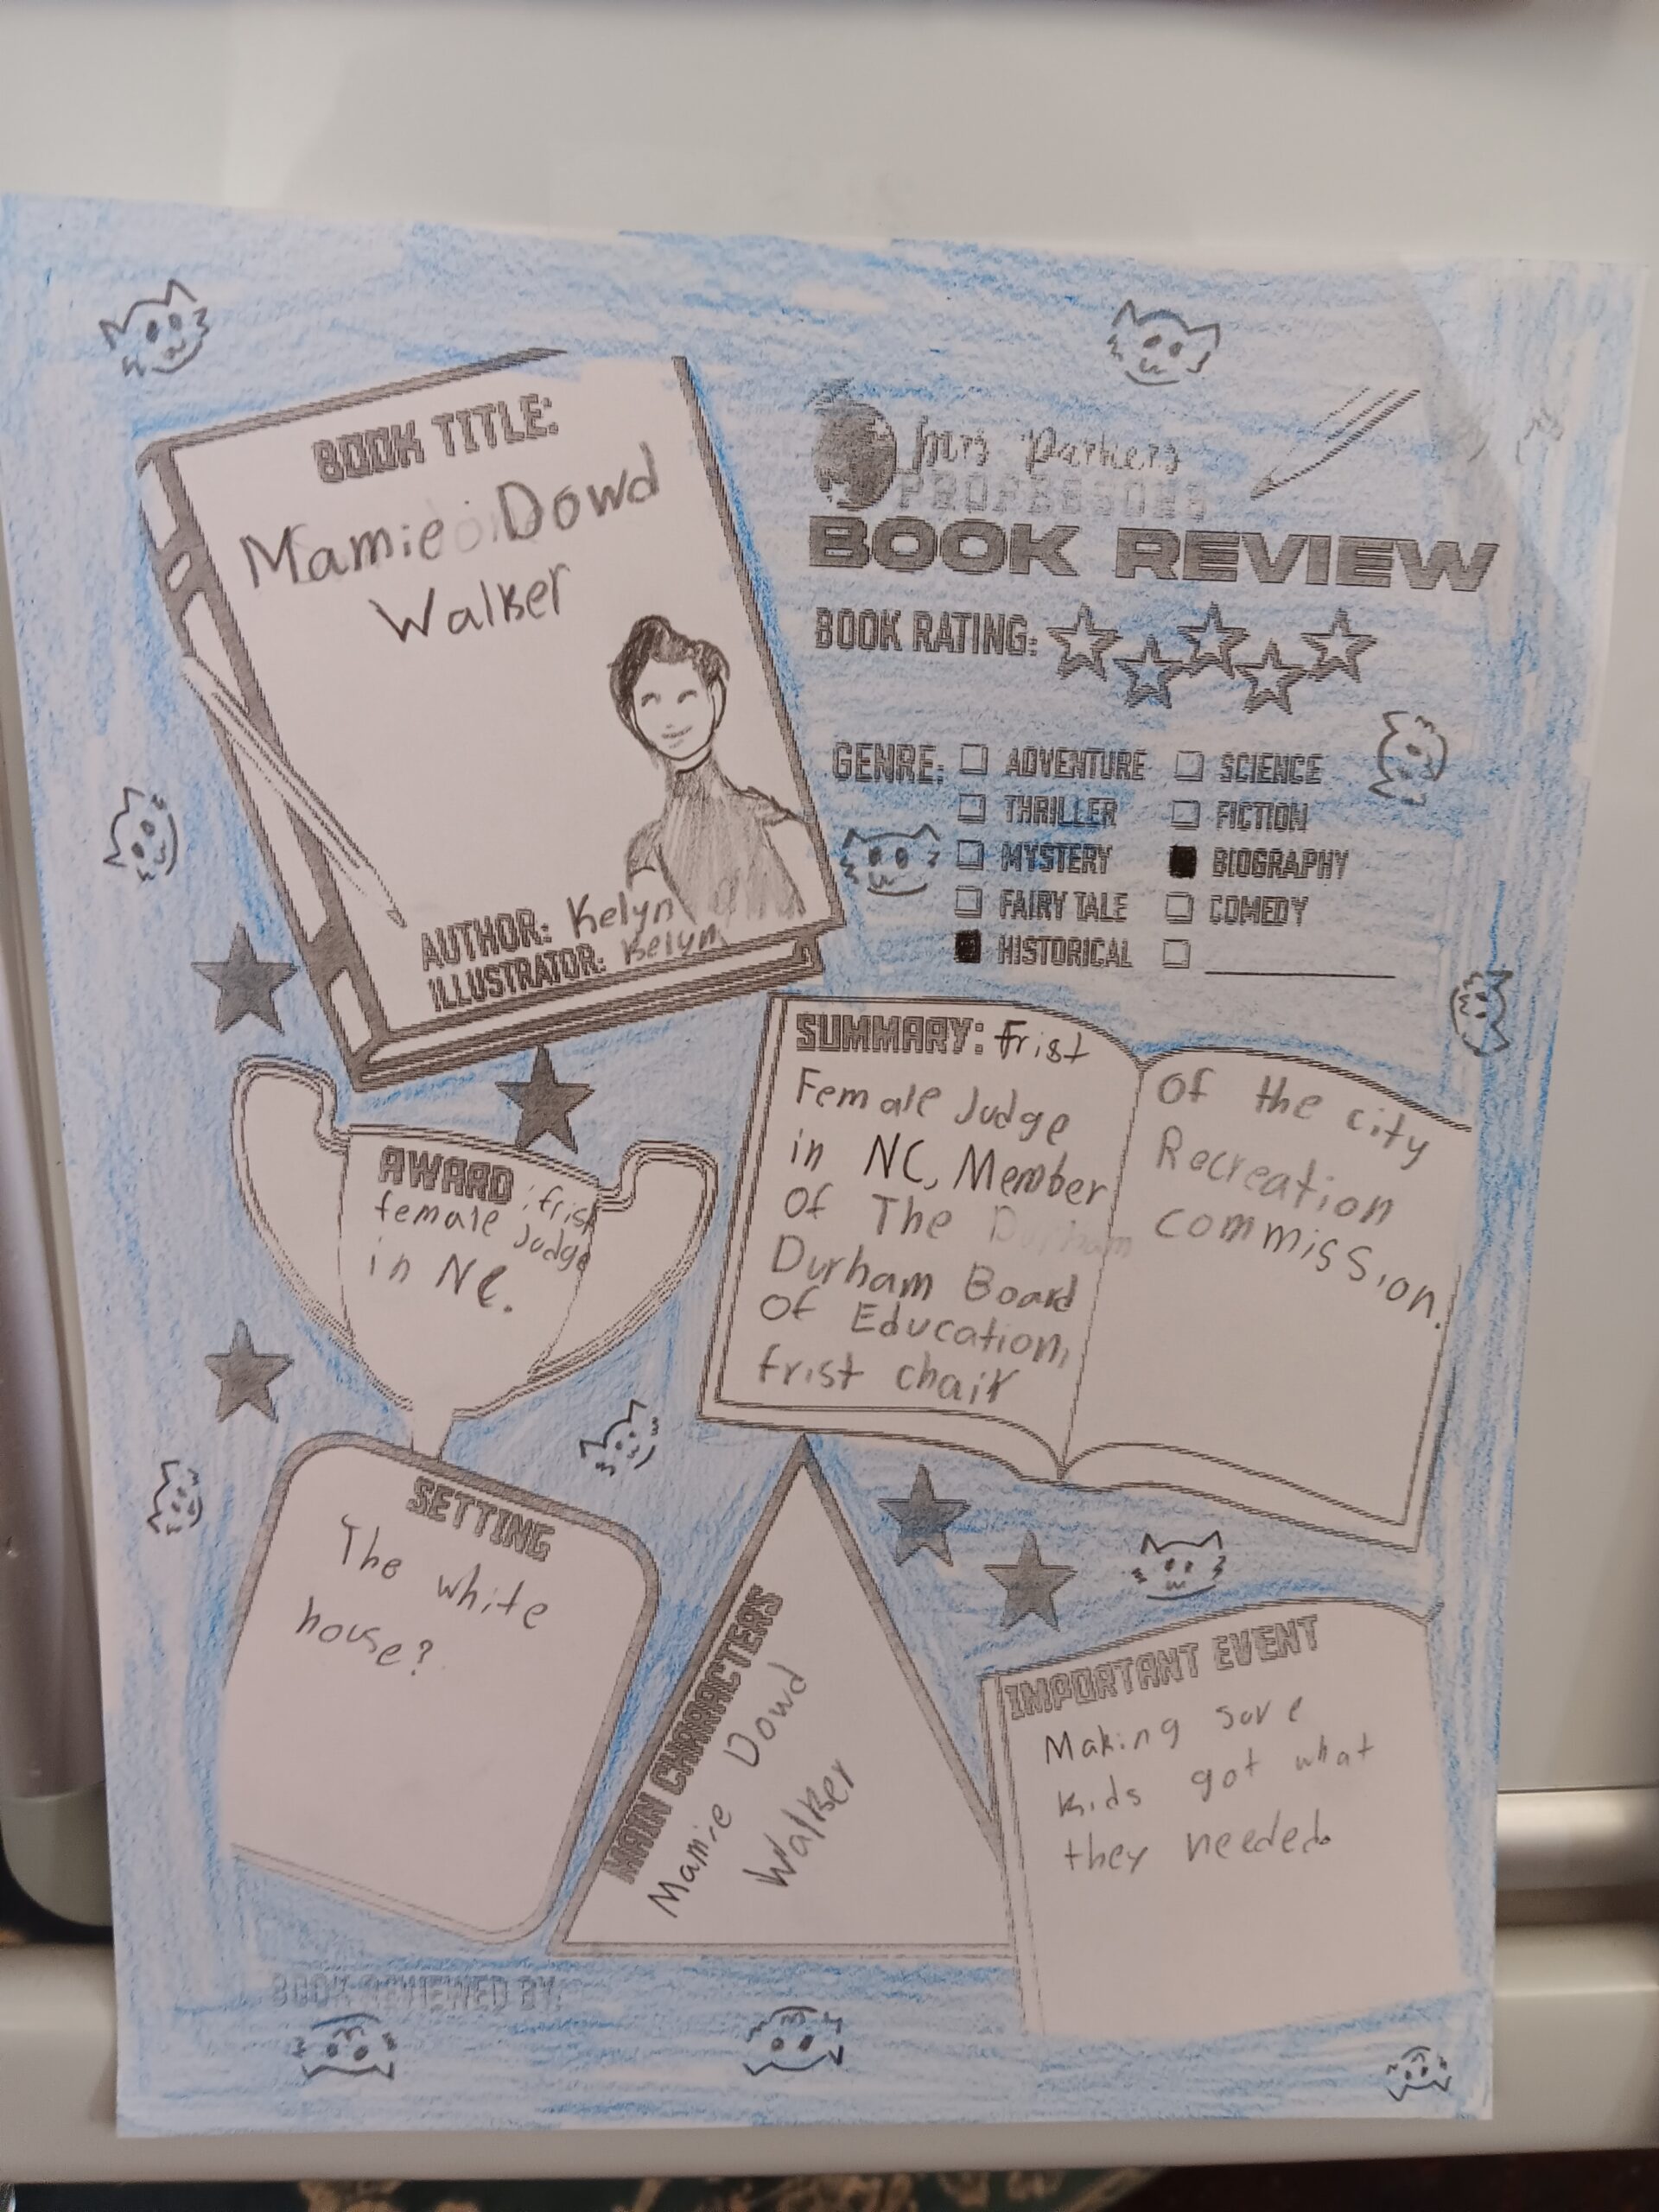 BOOK TITLE:
Mamie Dowd
Walker
AUTHOR: Kelyn
ILLUSTRATOR: Kelyn
Mrs Parkers
PROFESSORS
BOOK REVIEW
BOOK RATING:
GENRE:
ADVENTURE
SCIENCE
THRILLER
FICTION
MYSTERY
BIOGRAPHY
FAIRY TALE
COMEDY
HISTORICAL
SUMMARY: frist
Female Judge
in NC, Member
of The Durham
Durham Board
of Education,
frist chair
of the city
Recreation
commission.
AWARD: frist
female Judge
in NC.
SETTING
The white
house?
MAIN CHARACTERS
Mamie Dowd
Walker
IMPORTANT EVENT
Making sure
kids got what
they needed.
BOOK REVIEWED BY: